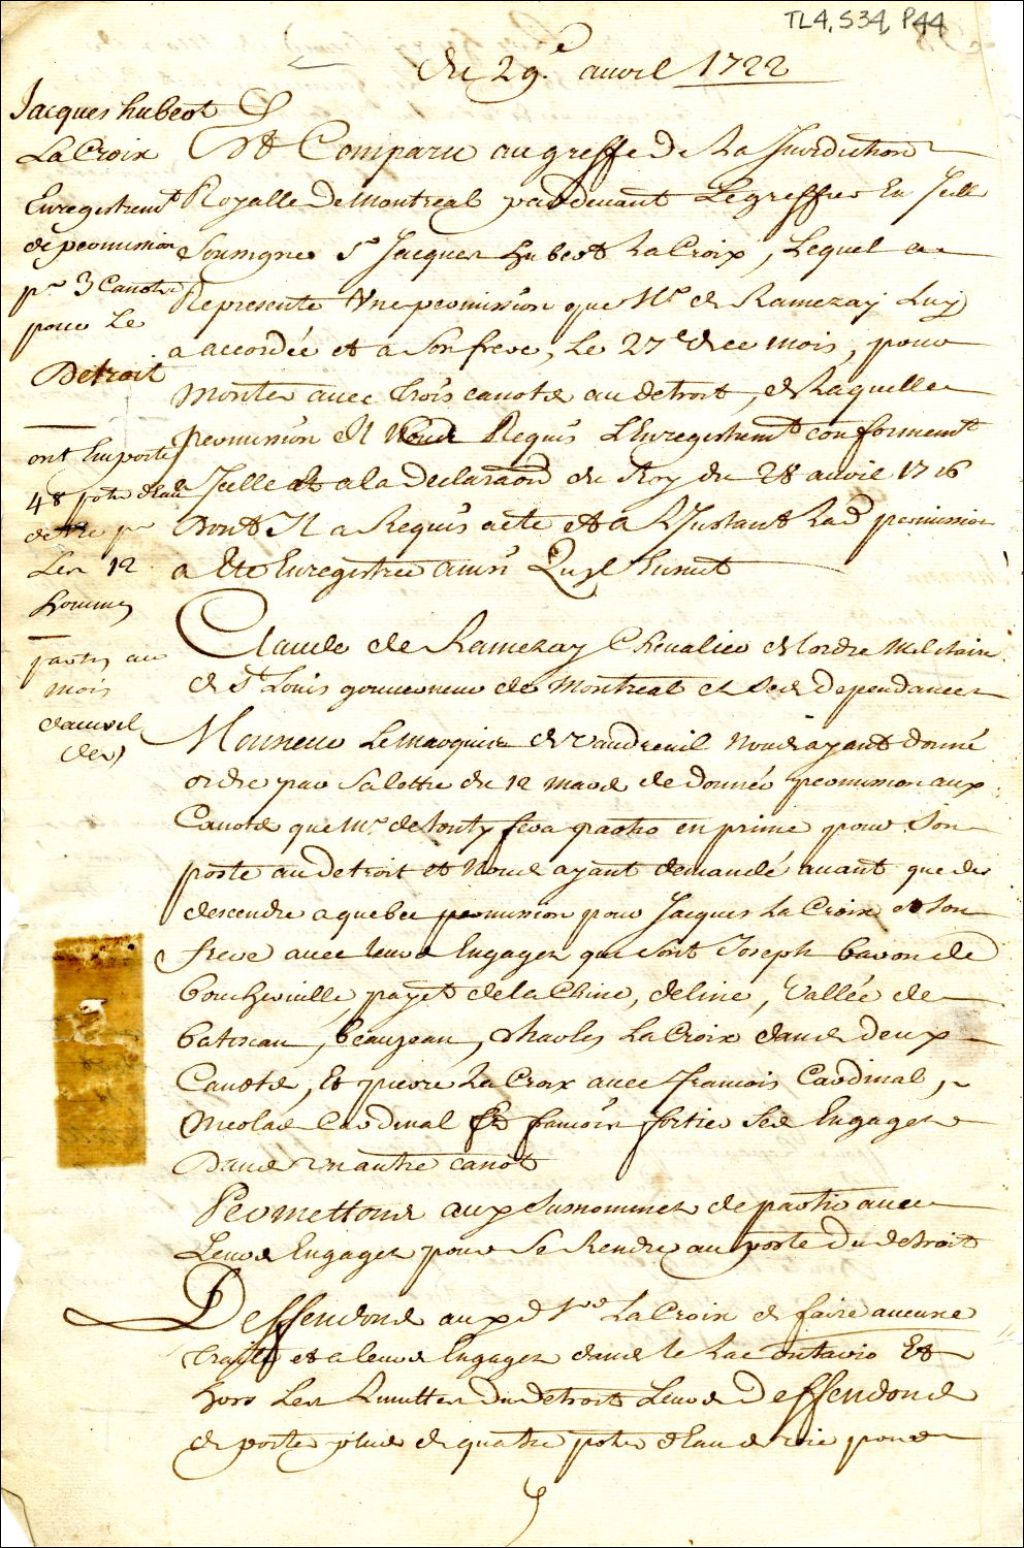 TL4, S34, P44
Du 29.e auril 1722
Jacques hubert
LaCroix
Enregistremt
de permission
pr 3 Canots
pour Le
Detroit
ont Emporté
48 pots deau
de vie pr
Les 12
hommes
partis au
mois
dauril
Est Comparu au greffe De La Jurisdiction
Royalle De Montreal pardeuant Le greffier En Jcelle
Soussigné Sr Jacques hubert LaCroix, Lequel a
Representé Vne permission que Mr de Ramezay Luy
a accordée et a Son frere, Le 27e de ce mois, pour
Monter auec trois canots au detroit, de Laquelle
permission Jl Nous Requis LEnregistremt conformemt
a Jcelle et a la Declaraon du Roy du 28 auril 1716
Dont Jl a Requis acte et a LJnstant Lad permission
a Eté Enregistrée ainsi Quil Ensuit
Claude de Ramezay Cheualier de lordre Militaire
de St Louis gouuerneur de Montreal et Ses dependances
Monsieur Le Marquis de Vaudreuil Nous ayant donné
ordre par Sa lettre du 12 mars de donner permission aux
Canots que Mr de tonty fera partir en prime pour Son
poste au Detroit et Nous ayant demandé auant que de
descendre a quebec permission pour Jacques La Croix et Son
frere auec leurs Engagez qui Sont Joseph baron de
boucheruille, payet de la Chine, deline, Vallée de
batiscan, beaujean, Charles La Croix dans deux
Canots, Et pierre La Croix auec francois Cardinal,
Nicolas Cardinal Et francois fortier Ses Engagez
Dans vn autre canot
Permettons aux Susnommez de partir auec
Leurs Engagez pour Se Rendre au poste Du detroit
Deffendons aux d Srs LaCroix de faire aucune
traitte et a leurs Engagez dans le Lac ontario Et
hors Les Limittes Du Detroit Leurs Deffendons
de porter plus de quatre pots dEau de vie pour